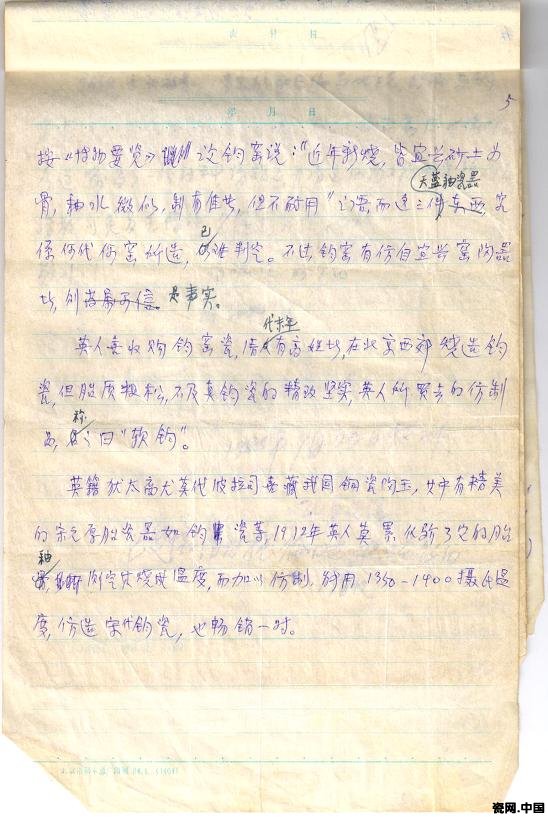 年 月 日
5
按《博物要览》说钧窑说："近年新烧，皆宜兴砂土为
天蓝釉瓷器
骨，釉水微似，制有佳者，但不耐用"之语，而这三件东西，究
已
系何代何窑所造，难判定。不过钧窑有仿自宜兴窑陶器
者，则若属可信 是事实。
代末年
英人喜收购钧窑瓷，清有高姓者，在北京西郊烧造钧
瓷，但胎质粗松，不及真钧瓷的精致坚实，英人所买去的仿制
称
品，名之曰"软钧"。
英籍犹太商人莫代波拉司喜藏我国铜瓷陶玉，其中有精美
的宋元厚胎瓷器如钧瓷等，1912年英人莫累化验了它的胎
釉
骨，测定其烧成温度，而加以仿制，利用1350-1400摄氏温
度，仿造宋代钧瓷，也畅销一时。
瓷网.中国